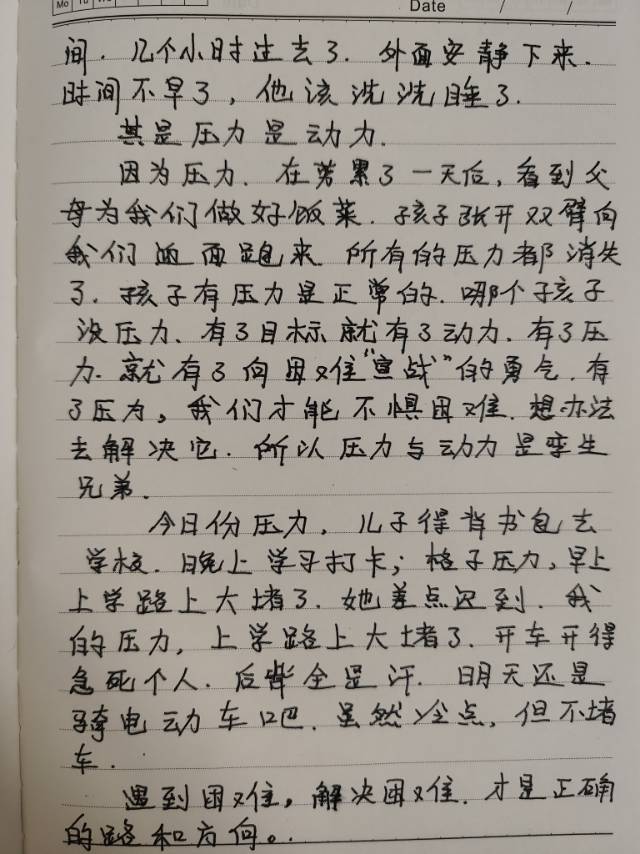 Mo Tu We
Date / /
间. 几个小时过去了. 外面安静下来.
时间不早了, 他该洗洗睡了.
其是压力是动力.
因为压力. 在劳累了一天后, 看到父
母为我们做好饭菜. 孩子张开双臂向
我们迎面跑来 所有的压力都消失
了. 孩子有压力是正常的. 哪个孩子
没压力. 有了目标就有了动力. 有了压
力. 就有了向困难“宣战”的勇气. 有
了压力, 我们才能不惧困难. 想办法
去解决它. 所以压力与动力是孪生
兄弟.
今日份压力, 儿子得背书包去
学校. 晚上学习打卡; 格子压力, 早上
上学路上大堵了. 她差点迟到. 我
的压力, 上学路上大堵了. 开车开得
急死个人. 后背全是汗. 明天还是
骑电动车吧. 虽然冷点, 但不堵
车.
遇到困难, 解决困难. 才是正确
的路和方向。.